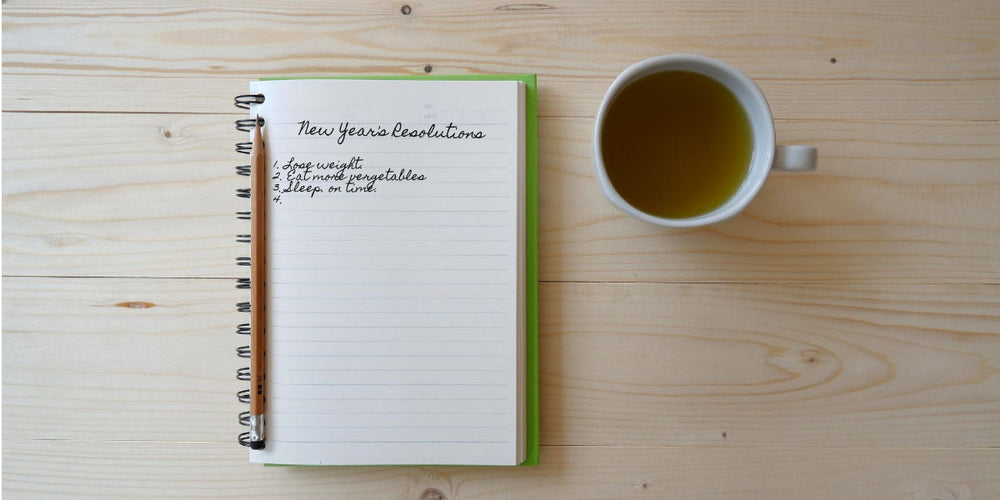 New Year's Resolutions
1. Lose weight.
2. Eat more vergetables
3. Sleep on time.
4.